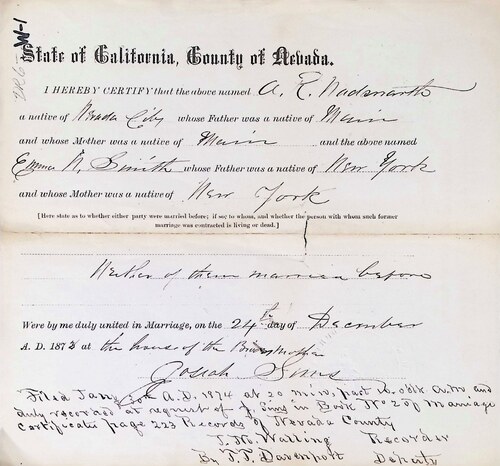 W-1
State of California, County of Nevada.
I HEREBY CERTIFY that the above named A. E. Wadsworth
a native of Nevada City whose Father was a native of Main
and whose Mother was a native of Main and the above named
Emma N. Smith whose Father was a native of New York
and whose Mother was a native of New York
[Here state as to whether either party were married before; if so; to whom, and whether the person with whom such former
marriage was contracted is living or dead.]
Neither of them married before
Were by me duly united in Marriage, on the 24th day of December
A. D. 1873 at the house of the Brides Mother
Josiah Sims
Filed Jany A.D. 1874 at 20 min, past 10 o'clk A.M and
duly recorded at request of J. Sims in Book No 2 of Marriage
Certificates page 223 Records of Nevada County
Recorder
By T. T. Davenport Deputy